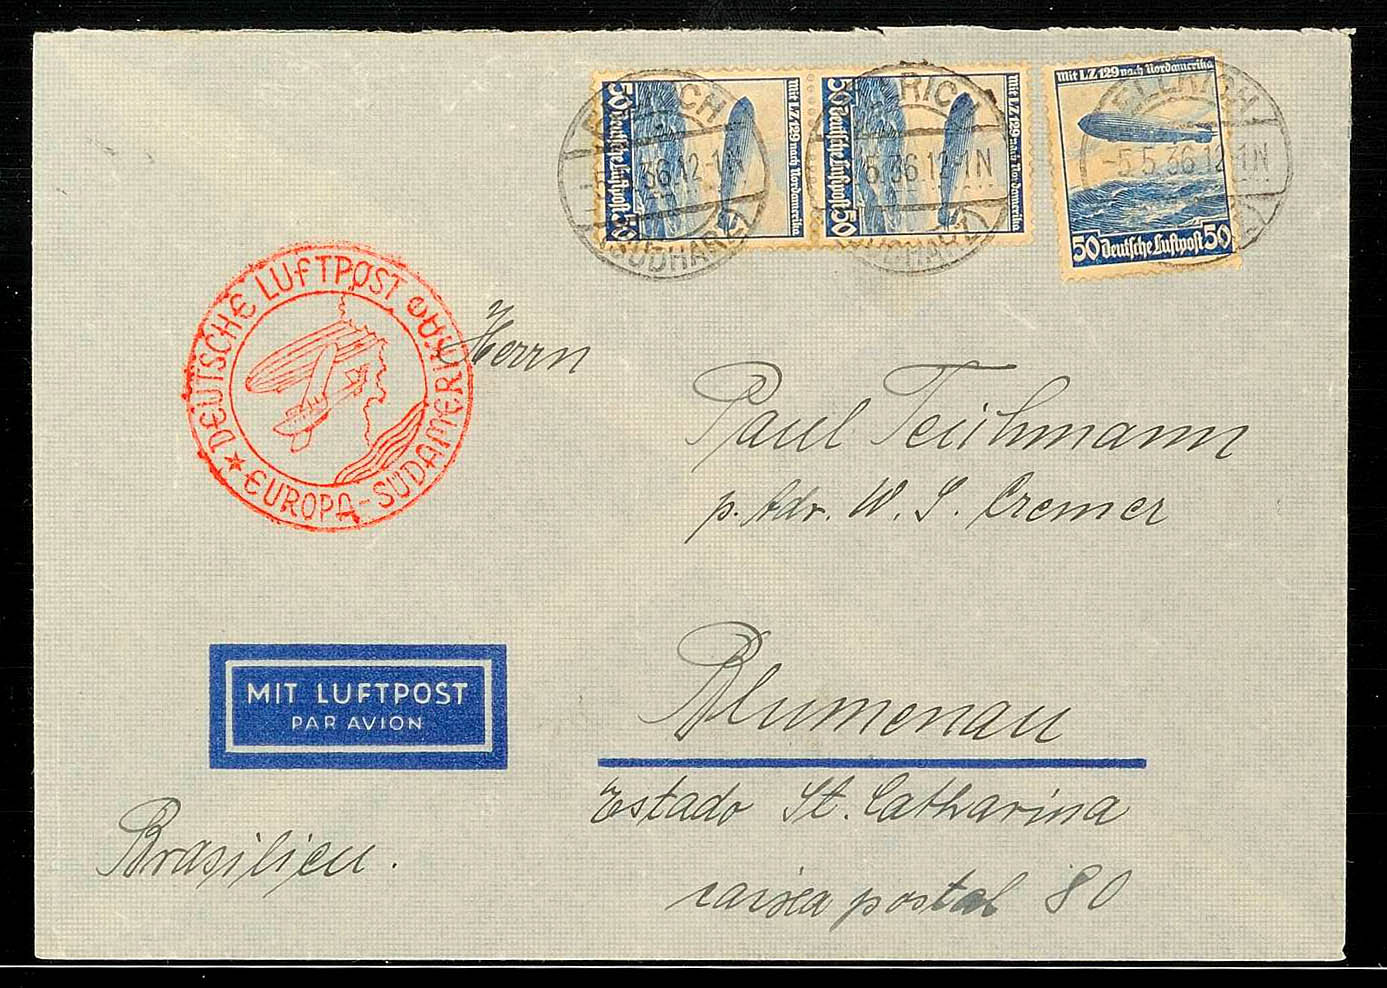 50 Deutsche Luftpost 50
mit LZ 129 nach Nordamerika
50 Deutsche Luftpost 50
mit LZ 129 nach Nordamerika
mit LZ 129 nach Nordamerika
50 Deutsche Luftpost 50
ELLRICH
-5.5.36.12-1N
(SÜDHARZ)
ELLRICH
5.36.12-1N
(SÜDHARZ)
ELLRICH
-5.5.36.12-1N
DEUTSCHE LUFTPOST
EUROPA-SÜDAMERIKA
Herrn
Paul Teichmann
p. Adr. W. S. Cremer
Blumenau
MIT LUFTPOST
PAR AVION
Estado St. Catharina
Brasilien.
caixa postal 80